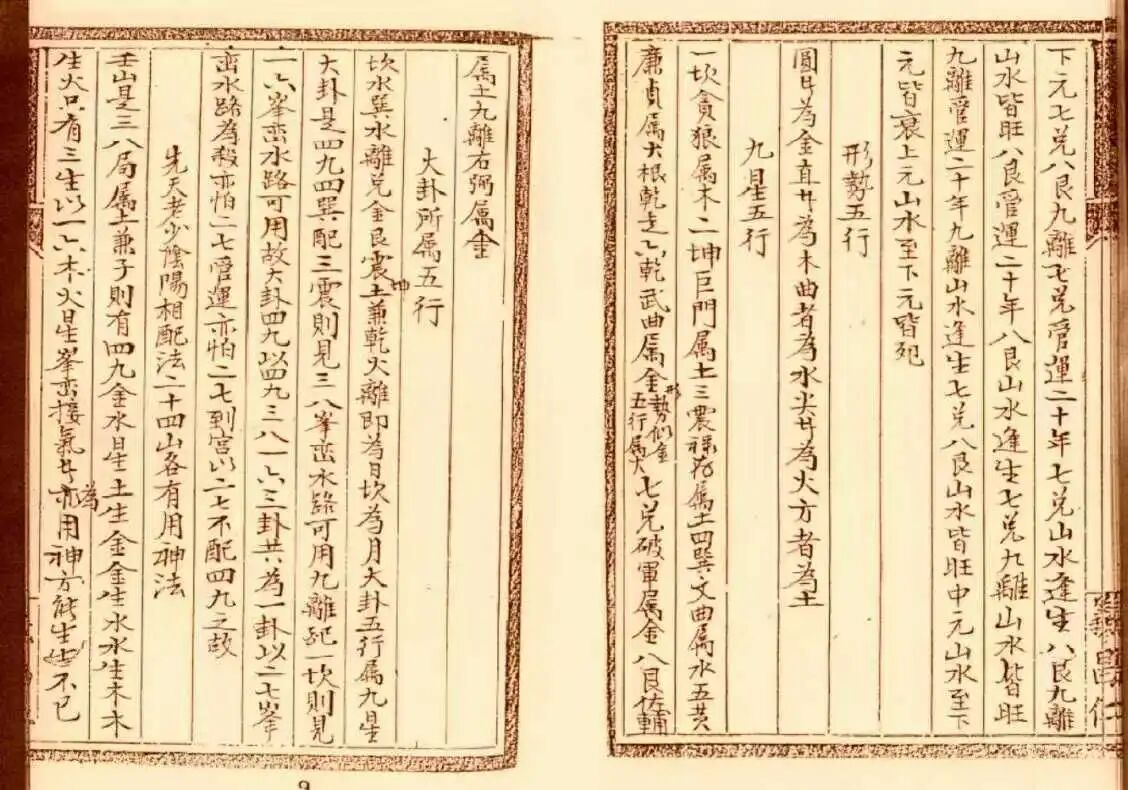 下元七兌八艮九離七兌管運二十年七兌山水逢生八艮九離
山水皆旺八艮管運二十年八艮山水逢生七兌九離山水皆旺
九離管運二十年九離山水逢生七兌八艮山水皆旺中元山水至下
元皆衰上元山水至下元皆死
形勢五行
圓者為金直者為木曲者為水尖者為火方者為土
九星五行
一坎貪狼属木二坤巨門属土三震祿存属土四巽文曲属水五黄
廉貞属火根乾走六乾武曲属金形勢似金五行属火七兌破軍属金八艮佐輔
属土九離右弼属金
大卦所属五行
坎水巽水離兌金艮震土坤兼乾火離即為日坎為月大卦五行属九星
大卦是四九四巽配三震則見三八峯巒水路可用九離配一坎則見
一六峯巒水路可用故大卦四九以四九三八一六三卦共為一卦以二七峯
巒水路為殺亦怕二七管運亦怕二七到宮以二七不配四九之故
先天老少陰陽相配法二十四山各有用神法
壬山是三八局属土兼子則有四九金水星土生金金生水水生木木
生火只有三生以一六木火星峯巒接氣者亦為用神方能生生不已